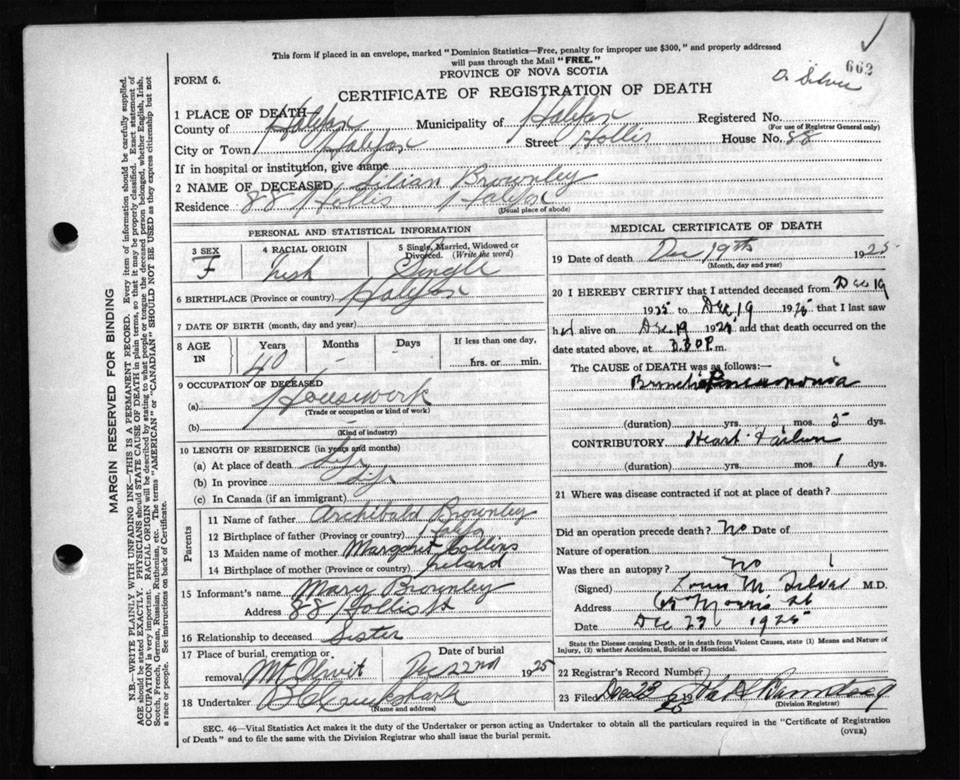 This form if placed in an envelope, marked "Dominion Statistics—Free, penalty for improper use $300," and properly addressed
will pass through the Mail "FREE."
PROVINCE OF NOVA SCOTIA
662
FORM 6.
CERTIFICATE OF REGISTRATION OF DEATH
1 PLACE OF DEATH
County of Halifax Municipality of Halifax Registered No.
(For use of Registrar General only)
City or Town Halifax Street Hollis House No. 88
If in hospital or institution, give name
2 NAME OF DECEASED Lilian Brownley
Residence 88 Hollis Halifax
(Usual place of abode)
PERSONAL AND STATISTICAL INFORMATION
3 SEX F
4 RACIAL ORIGIN Irish
5 Single, Married, Widowed or Divorced. (Write the word) Single
6 BIRTHPLACE (Province or country) Halifax
7 DATE OF BIRTH (month, day and year)
8 AGE IN Years 40 Months - Days - If less than one day, hrs. or min.
9 OCCUPATION OF DECEASED
(a) Housework
(Trade or occupation or kind of work)
(b)
(Kind of industry)
10 LENGTH OF RESIDENCE (in years and months)
(a) At place of death Life
(b) In province Life
(c) In Canada (if an immigrant)
Parents
11 Name of father Archibald Brownley
12 Birthplace of father (Province or country) Halifax
13 Maiden name of mother Margaret Collins
14 Birthplace of mother (Province or country) Ireland
15 Informant's name Mary Brownley
Address 88 Hollis St
16 Relationship to deceased Sister
17 Place of burial, cremation or removal Mt Olivet Date of burial Dec 22nd 1925
18 Undertaker
(Name and address)
MEDICAL CERTIFICATE OF DEATH
19 Date of death Dec 19th 1925
(Month, day and year)
20 I HEREBY CERTIFY that I attended deceased from Dec 19
1925 to Dec 19 1925 that I last saw
her alive on Dec 19 1925 and that death occurred on
date stated above, at 3.30 P. m.
The CAUSE of DEATH was as follows:—
Broncho Pneumonia
(duration) yrs. mos. 5 dys.
CONTRIBUTORY Heart Failure
(duration) yrs. mos. 1 dys.
21 Where was disease contracted if not at place of death?
Did an operation precede death? No Date of
Nature of operation
Was there an autopsy? No
(Signed) Louis M. Silver M.D.
Address 65 Morris St
Date Dec 23 1925
State the Disease causing Death, or in death from Violent Causes, state (1) Means and Nature of
Injury, (2) whether Accidental, Suicidal or Homicidal.
22 Registrar's Record Number
23 Filed Dec 23 25
(Division Registrar)
SEC. 46—Vital Statistics Act makes it the duty of the Undertaker or person acting as Undertaker to obtain all the particulars required in the "Certificate of Registration
of Death" and to file the same with the Division Registrar who shall issue the burial permit.
(OVER)
MARGIN RESERVED FOR BINDING
N.B.—WRITE PLAINLY WITH UNFADING INK—THIS IS A PERMANENT RECORD. Every item of information should be carefully supplied.
AGE should be stated EXACTLY. PHYSICIANS should STATE CAUSE OF DEATH in plain terms, so that it may be properly classified. Exact statement of
OCCUPATION is very important. RACIAL ORIGIN will be described by stating to what people or tongue the deceased person belonged, whether English, Irish,
Scotch, French, German, Russian, Ruthenian, etc. The terms "AMERICAN" or "CANADIAN" SHOULD NOT BE USED as they express citizenship but not
a race or people. See instructions on back of Certificate.